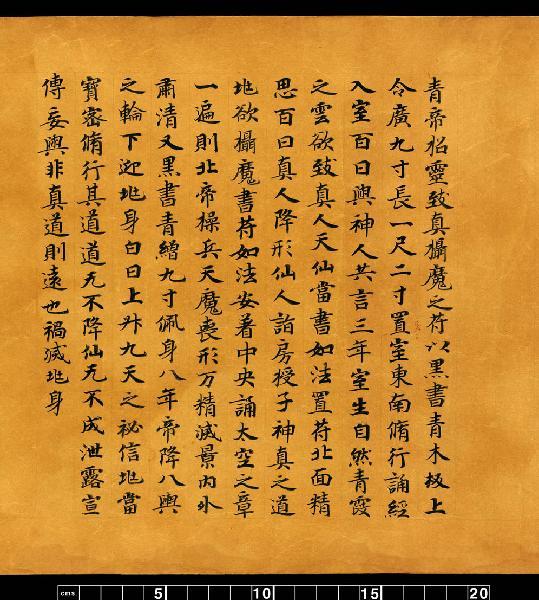 青帝招靈致真攝魔之苻以黑書青木板上
令廣九寸長一尺二寸置室東南脩行誦經
入室百日與神人共言三年室生自然青霞
之雲欲致真人天仙當書如法置苻北面精
思百日真人降形仙人詣房授子神真之道
地欲攝魔書苻如法安著中央誦太空之章
一遍則北帝操兵天魔喪形万精滅景内外
肅清又黑書青繒九寸佩身八年帝降八輿
之輪下迎地身白日上升九天之祕信地當
寶密脩行其道道无不降仙无不成泄露宣
傳妄與非真道則遠也禍滅地身
cms 5 10 15 20